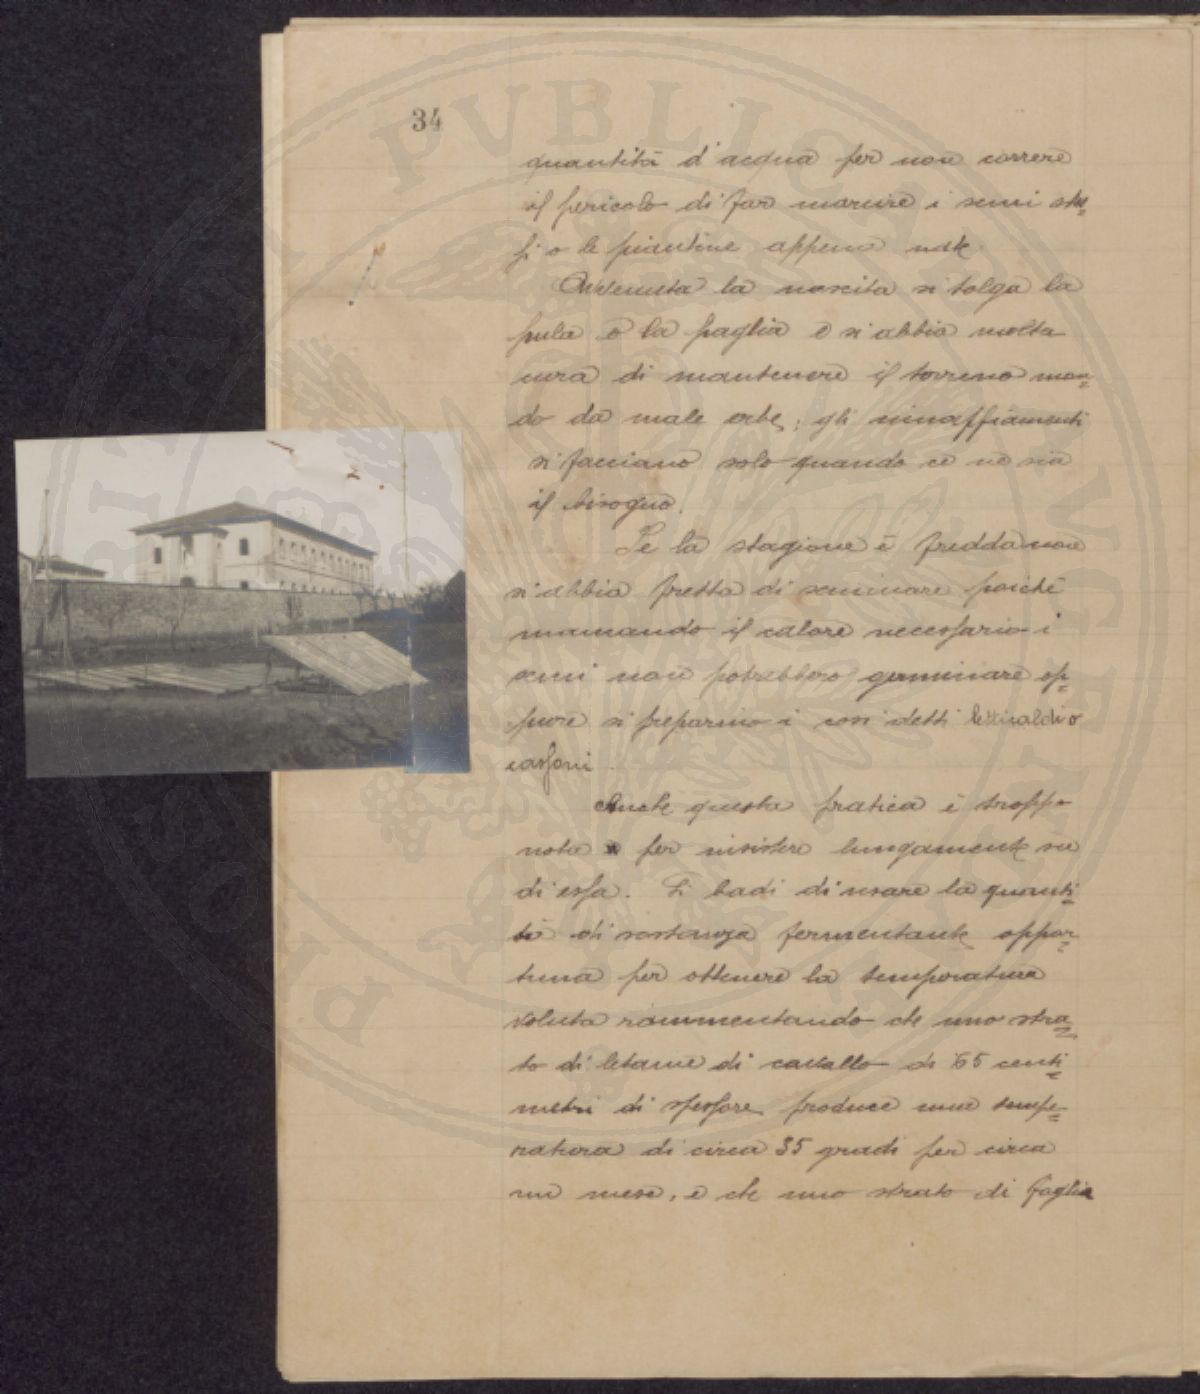 34
quantità d'acqua per non correre
il pericolo di far marcire i semi stes=
si o le piantine appena nate.
Avvenuta la nascita si tolga la
pula o la paglia e si abbia molta
cura di mantenere il terreno mon=
do da male erbe; gli innaffiamenti
si facciano solo quando ce ne sia
il bisogno.
Se la stagione è fredda non
si abbia fretta di seminare poichè
mancando il calore necessario i
semi non potrebbero germinare op=
pure si preparino i così detti letti caldi o
cassoni.
Anche questa pratica è troppo
nota per insistere lungamente su
di essa. Si badi di usare la quanti=
tà di sostanza fermentante oppor=
tuna per ottenere la temperatura
voluta rammentando che uno stra=
to di letame di cavallo di 65 centi=
metri di spessore produce una tempe=
ratura di circa 35 gradi per circa
un mese, e che uno strato di foglia
PVBLICAE